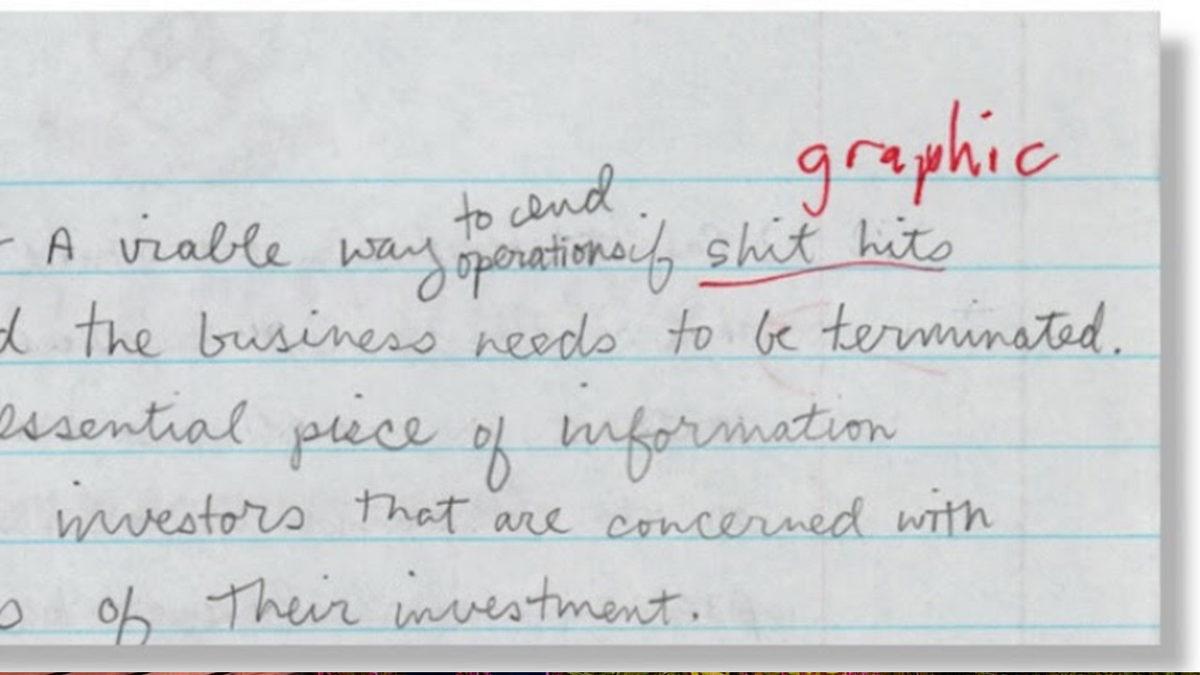 graphic
to end
- A viable way operations if shit hits
d the business needs to be terminated.
essential piece of information
investors that are concerned with
of their investment.